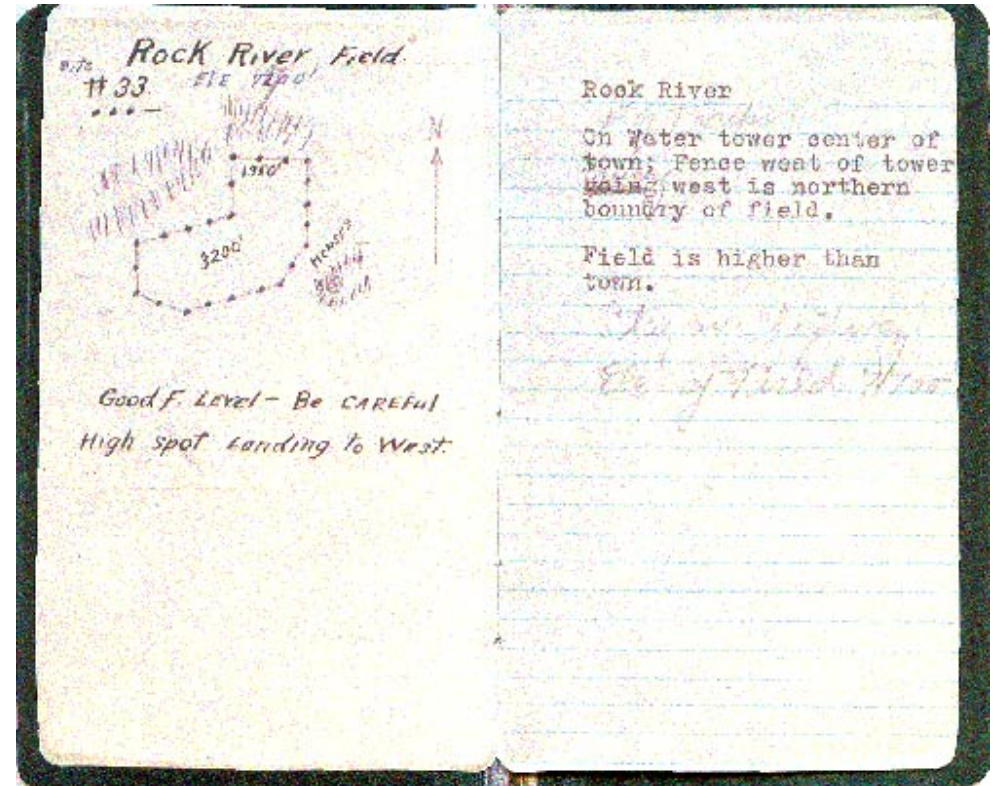 Rock River Field
Site
# 33
ELE 7200'
N
1950'
3200'
Good F. Level - Be CAREFul
High spot Landing to West.
Rook River
On Water tower center of
town; Fence west of tower
going west is northern
boundry of field.
Field is higher than
town.